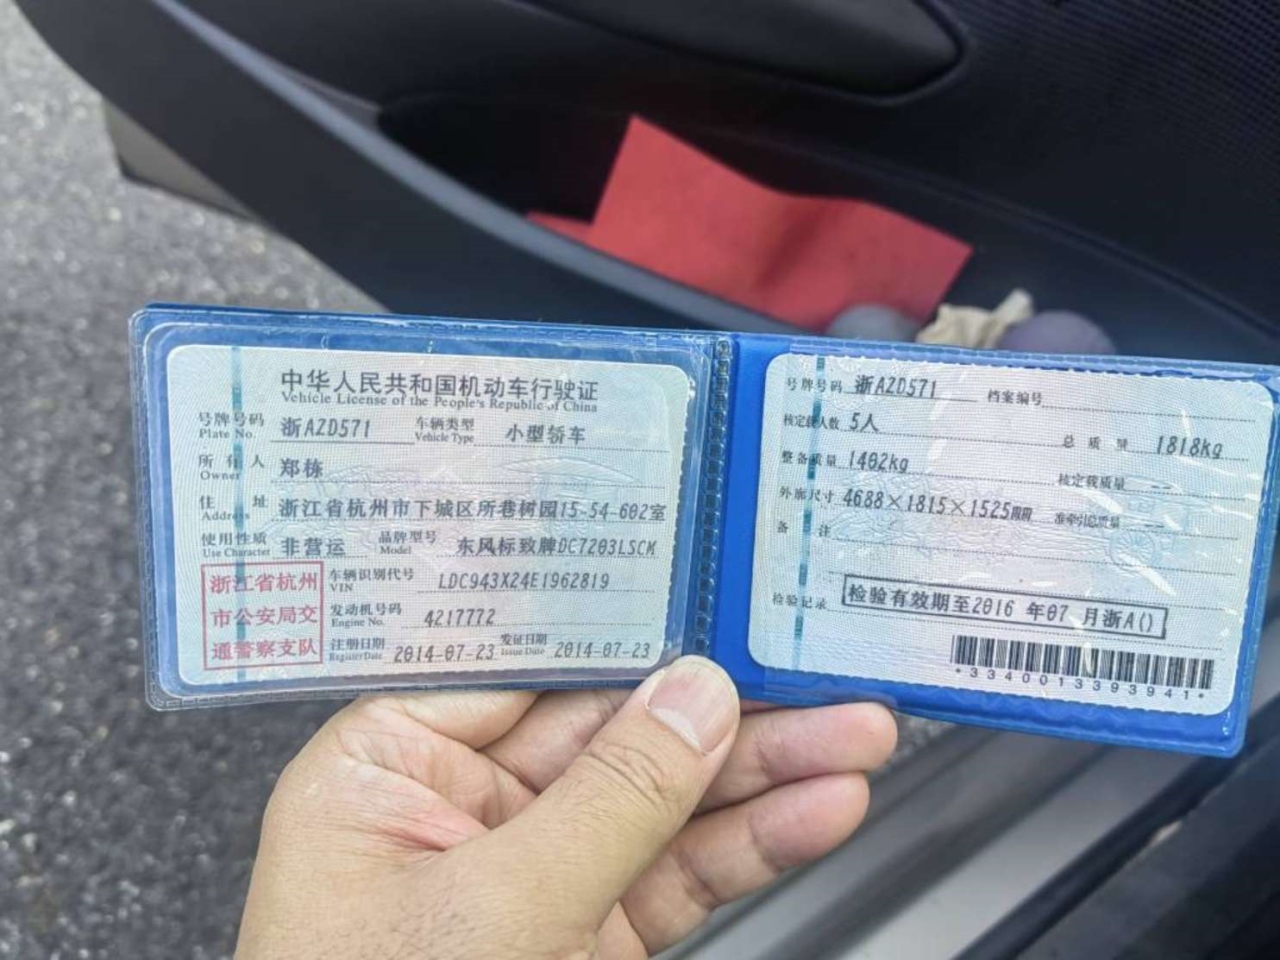 中华人民共和国机动车行驶证
Vehicle License of the People's Republic of China
号牌号码 浙AZD571 车辆类型 小型轿车
Plate No. Vehicle Type
所有人 郑栋
Owner
住址 浙江省杭州市下城区所巷树园15-54-602室
Address
使用性质 非营运 品牌型号 东风标致牌DC7203LSCM
Use Character Model
浙江省杭州
市公安局交
通警察支队
车辆识别代号 LDC943X24E1962819
VIN
发动机号码 4217772
Engine No.
注册日期 2014-07-23 发证日期 2014-07-23
Register Date Issue Date
号牌号码 浙AZD571 档案编号
核定载人数 5人 总质量 1818kg
整备质量 1402kg 核定载质量 --
外廓尺寸 4688×1815×1525mm 准牵引总质量 --
备注
检验记录 检验有效期至2016年07月浙A()
*3340013393941*